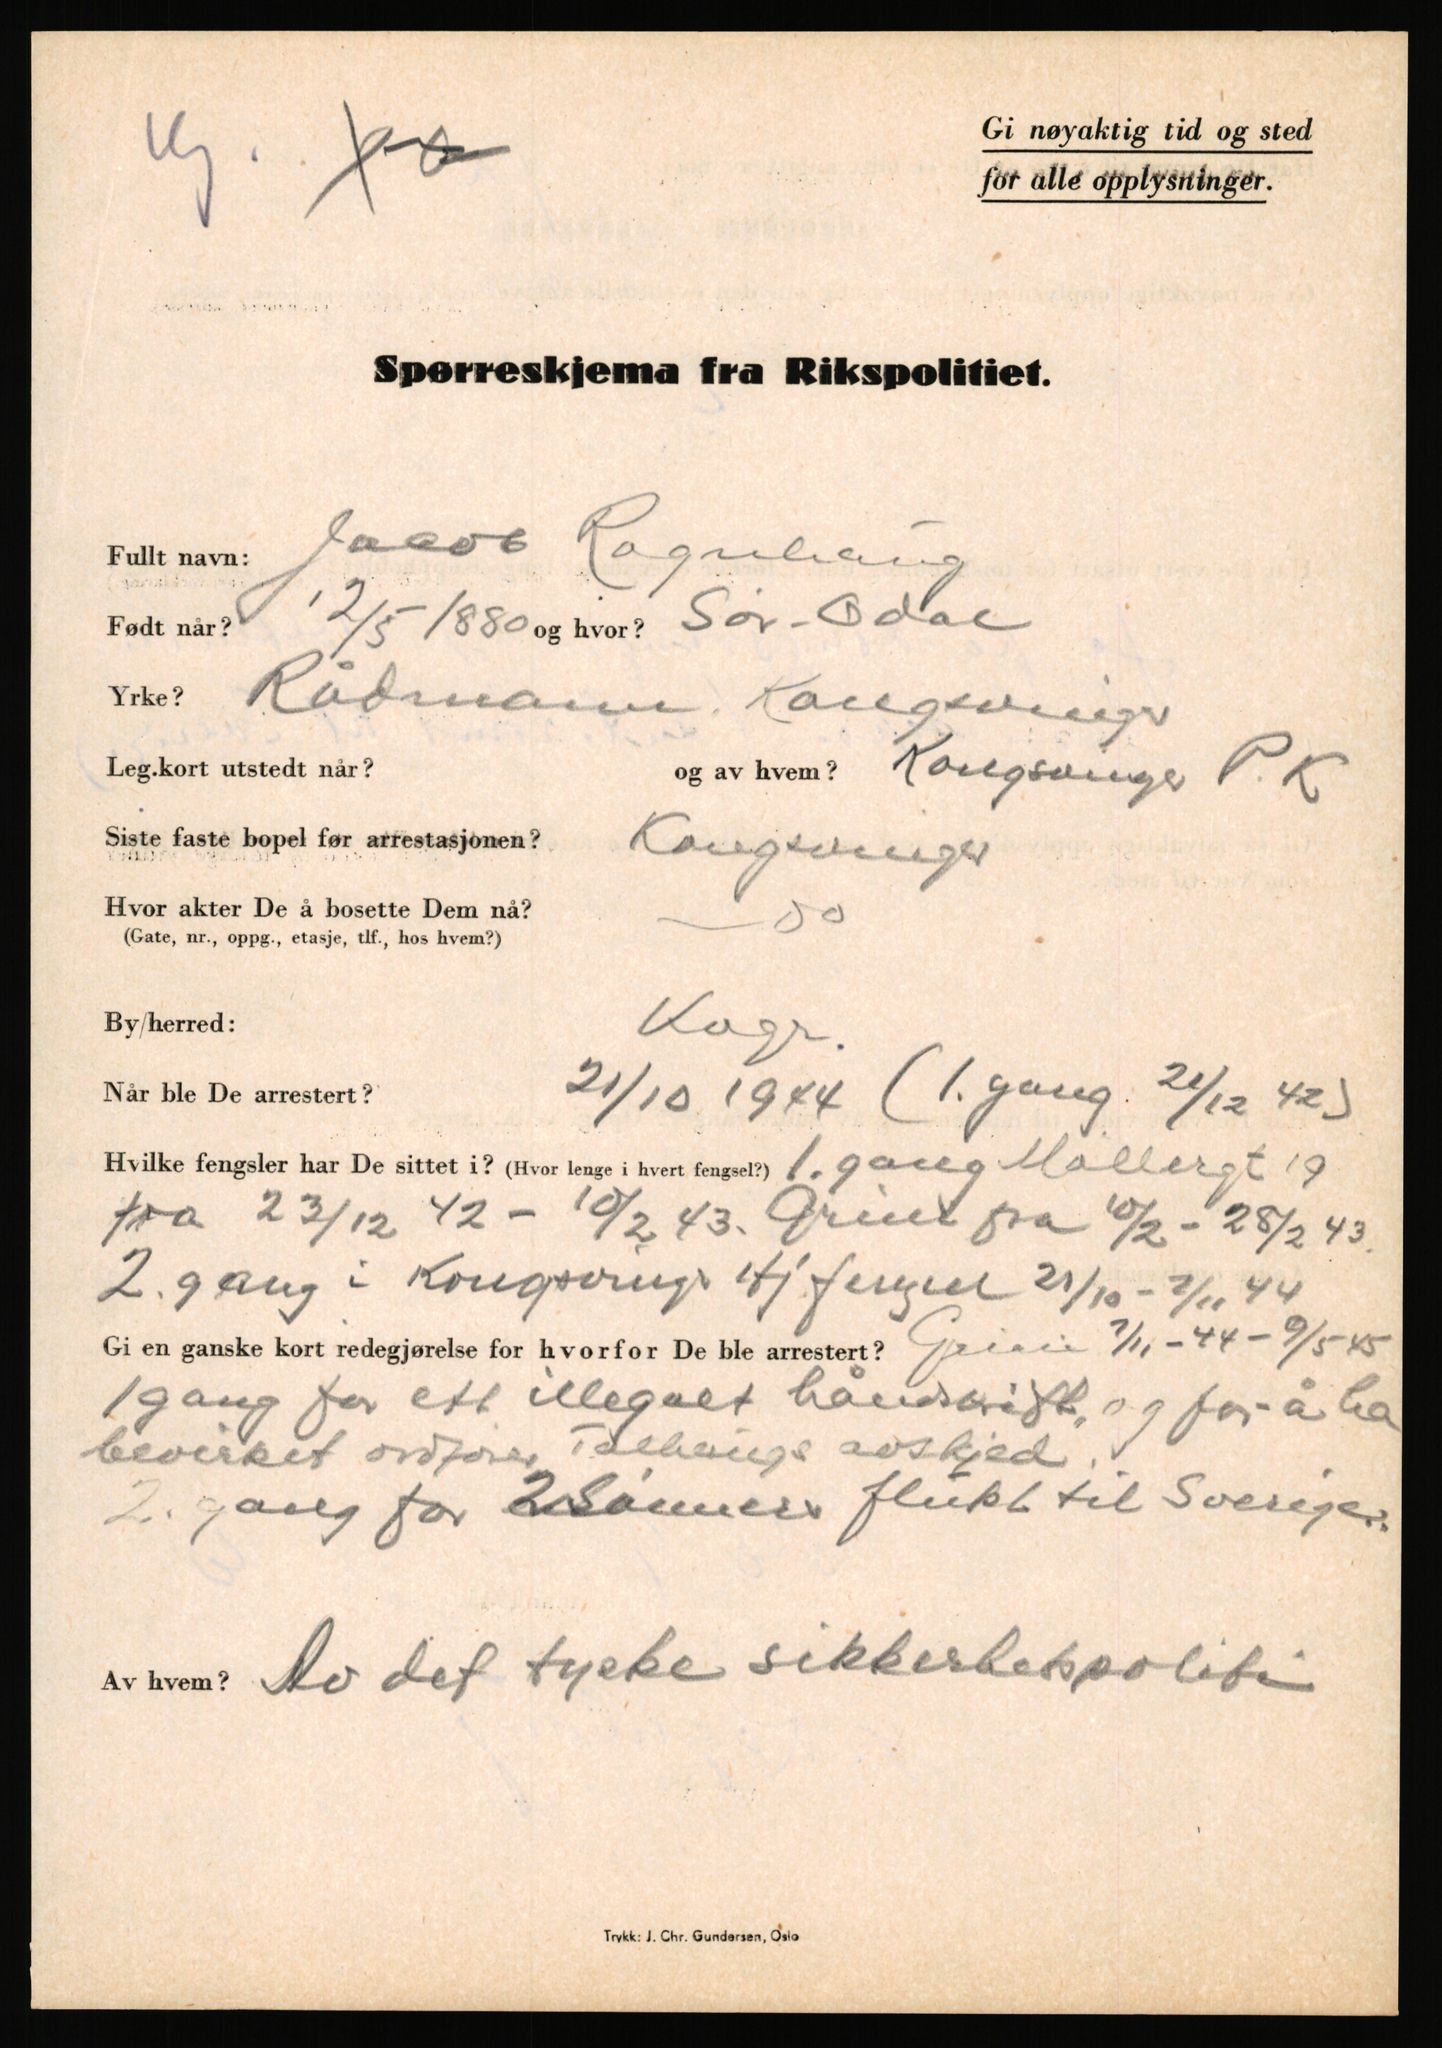 Kj.
Gi nøyaktig tid og sted
for alle opplysninger.
Spørreskjema fra Rikspolitiet.
Fullt navn: Jacob Ragnhaug
Født når? 12/5 1880 og hvor? Sør-Odal
Yrke? Rådmann. Kongsvinger
Leg.kort utstedt når? og av hvem? Kongsvinger P.K
Siste faste bopel før arrestasjonen? Kongsvinger
Hvor akter De å bosette Dem nå? — do
(Gate, nr., oppg., etasje, tlf., hos hvem?)
By/herred: Kvgr.
Når ble De arrestert? 21/10 1944 (1. gang. 21/12 42)
Hvilke fengsler har De sittet i? (Hvor lenge i hvert fengsel?) 1. gang Møllergt 19
fra 23/12 42 - 10/2 43. Grini fra 10/2 - 28/2 43.
2. gang i Kongsvinger Hj. fengsel 21/10 - 7/11 44
Gi en ganske kort redegjørelse for hvorfor De ble arrestert? Grini 7/11 - 44 - 9/5 45
1 gang for ett illegalt håndskrift, og for å ha
bevirket ordfører avskjed.
2. gang for 2 Sønners flukt til Sverige.
Av hvem? Av det tyske sikkerhetspoliti
Trykk: J. Chr. Gundersen, Oslo